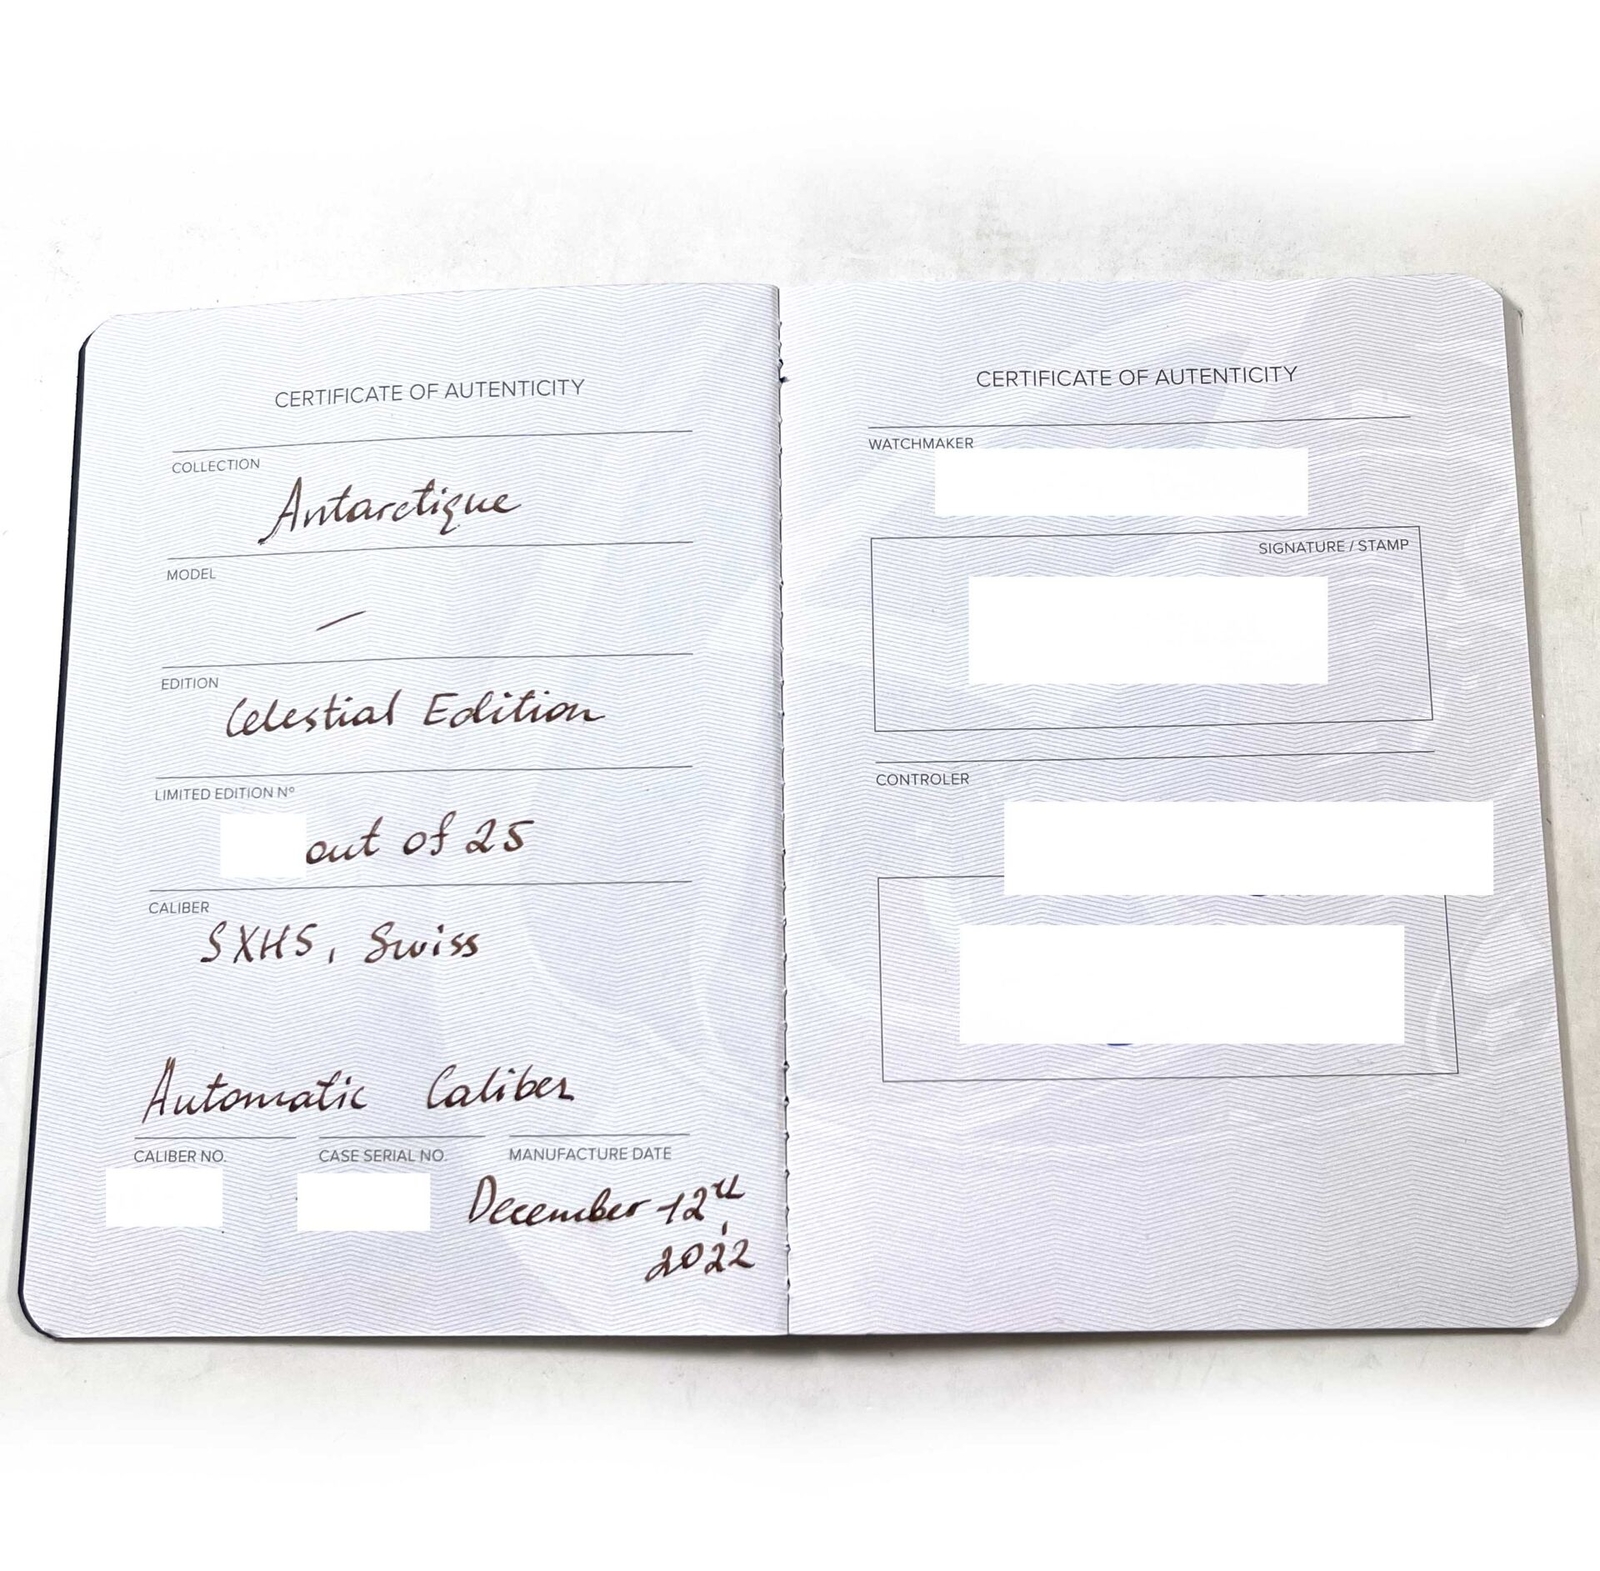 CERTIFICATE OF AUTENTICITY
COLLECTION
Antarctique
MODEL
—
EDITION
Celestial Edition
LIMITED EDITION Nº
out of 25
CALIBER
SXH5, Swiss
Automatic Caliber
CALIBER NO. CASE SERIAL NO. MANUFACTURE DATE
December 12th,
2022
CERTIFICATE OF AUTENTICITY
WATCHMAKER
SIGNATURE / STAMP
CONTROLER